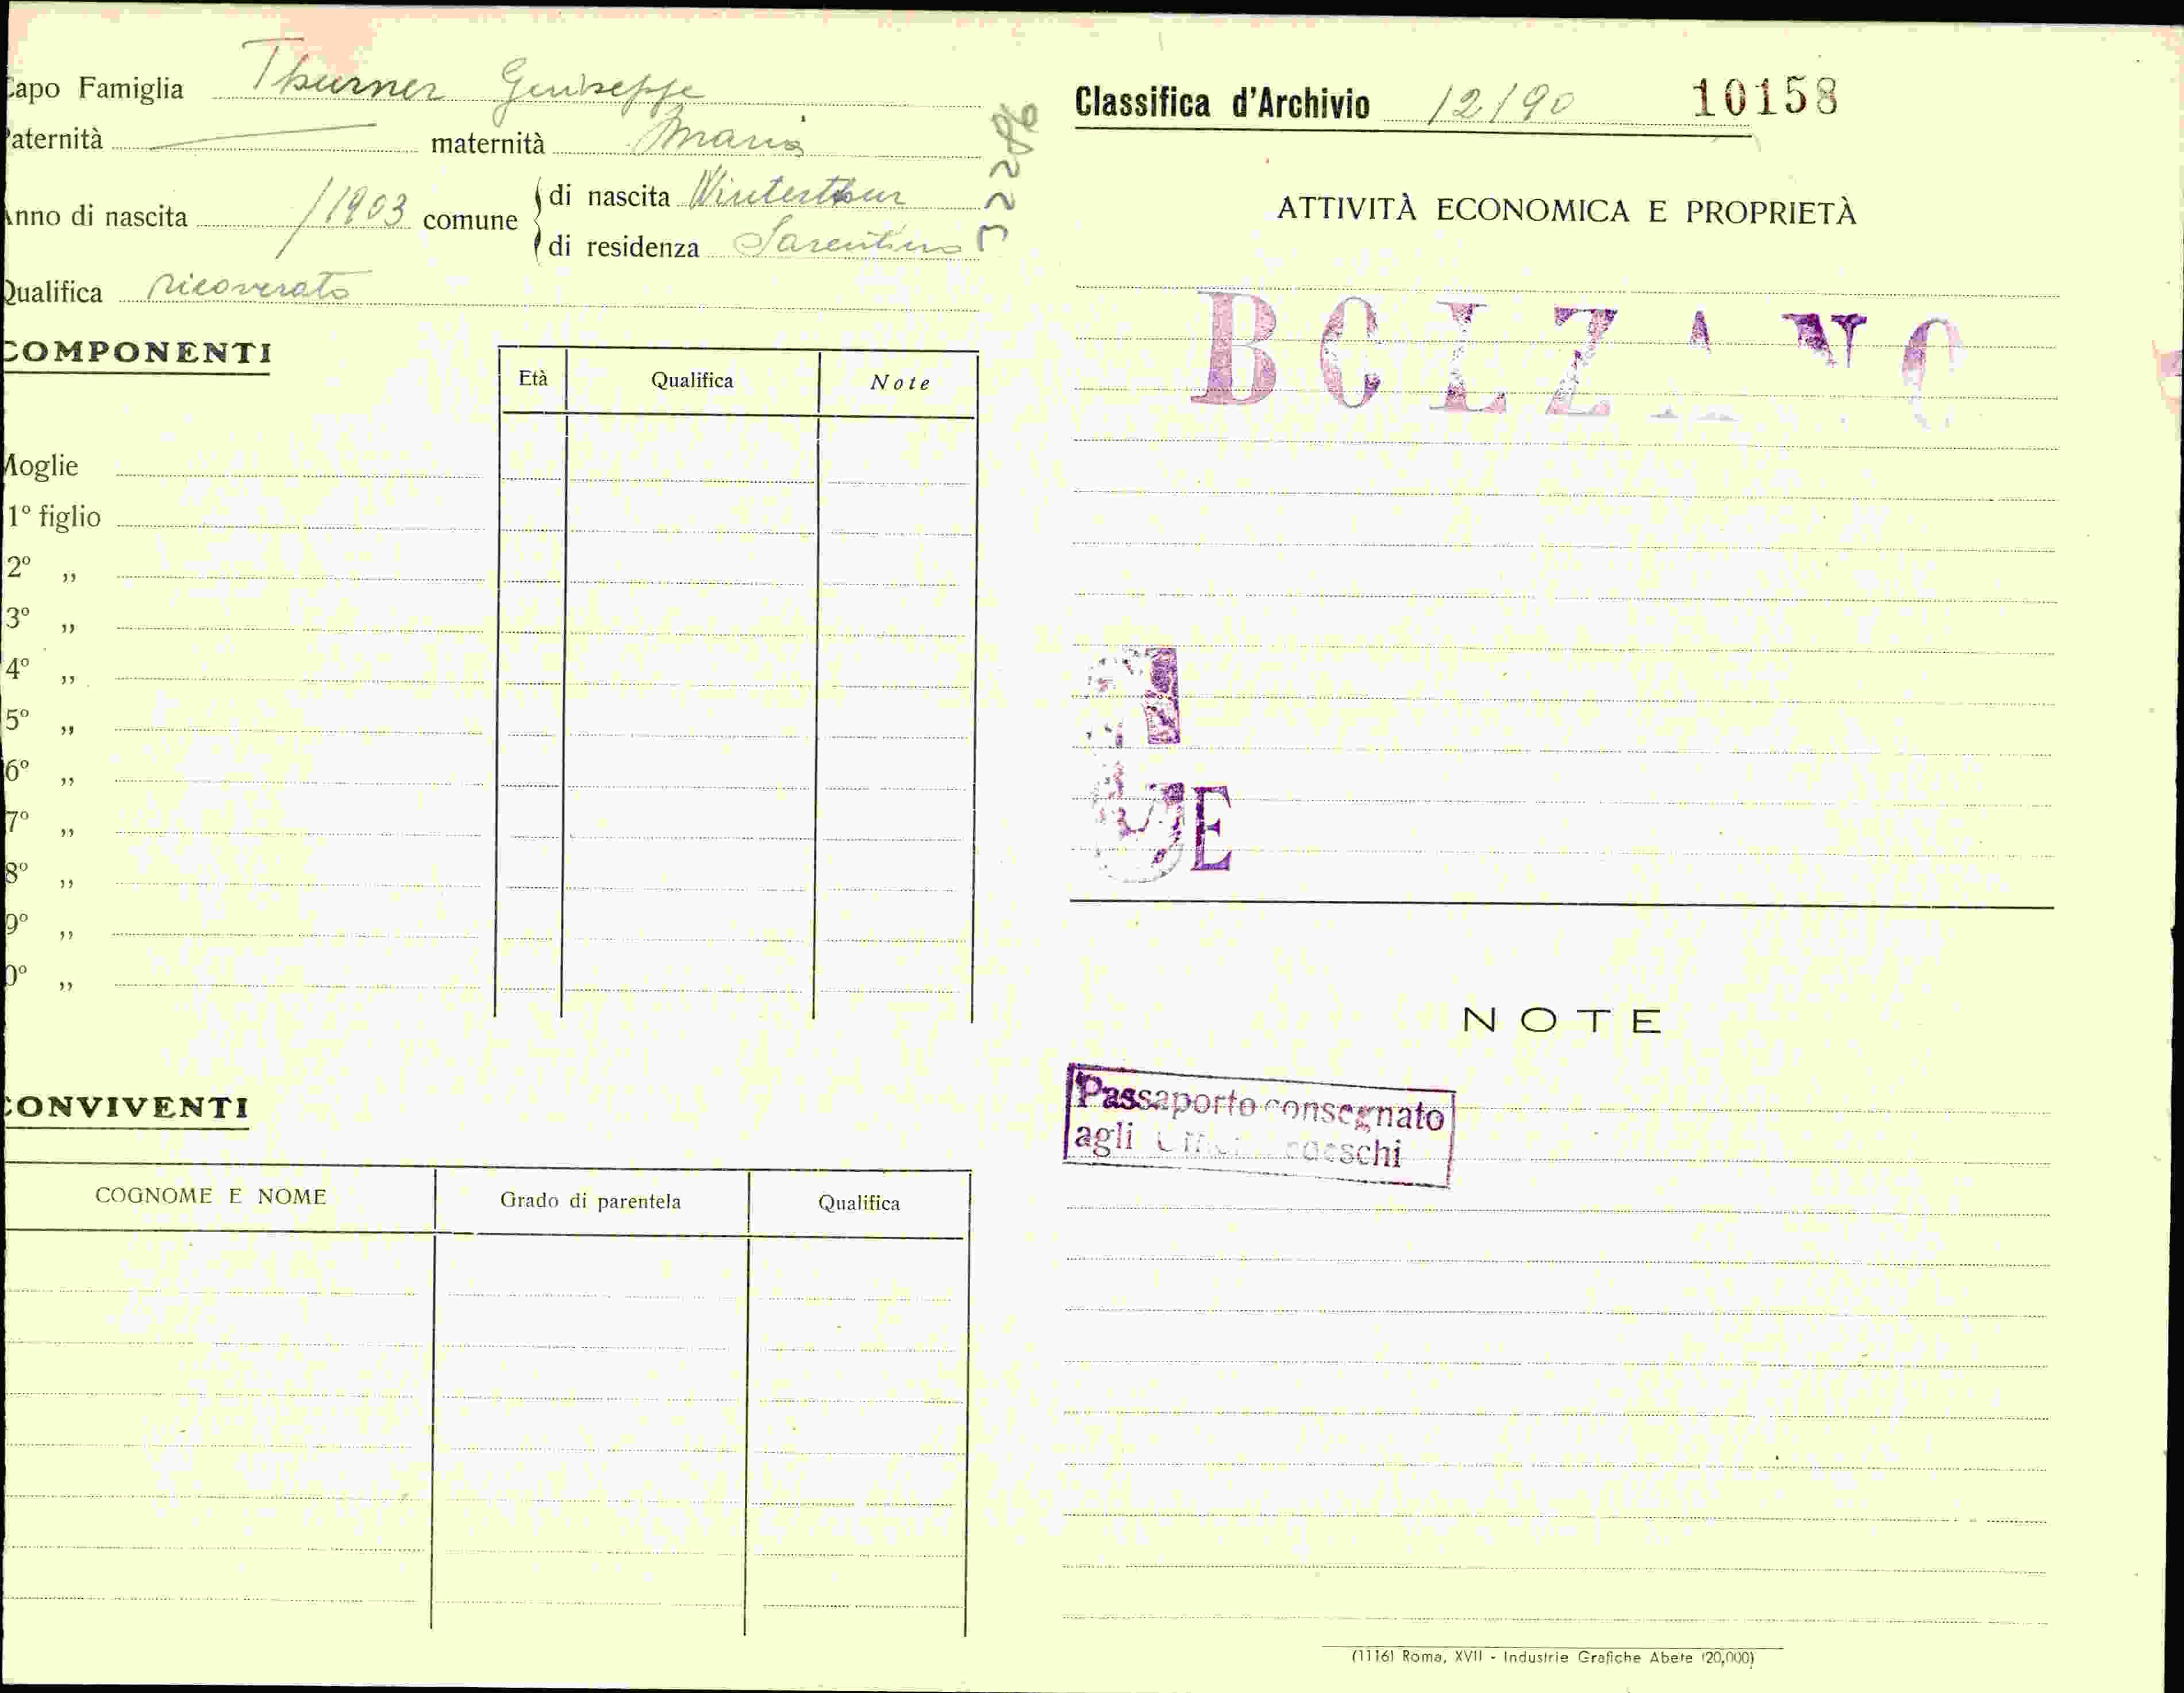 Capo Famiglia Thurner Giuseppe
Paternità maternità Maria
Anno di nascita /1903 comune
di nascita Winterthur
di residenza Sarentino
Qualifica ricoverato
COMPONENTI
Età Qualifica Note
Moglie
1° figlio
2° ,,
3° ,,
4° ,,
5° ,,
6° ,,
7° ,,
8° ,,
9° ,,
0° ,,
CONVIVENTI
COGNOME E NOME Grado di parentela Qualifica
Classifica d'Archivio 12/90 10158
ATTIVITÀ ECONOMICA E PROPRIETÀ
BOLZANO
E
NOTE
Passaporto consegnato
agli tedeschi
(1116) Roma, XVII - Industrie Grafiche Abete (20,000)